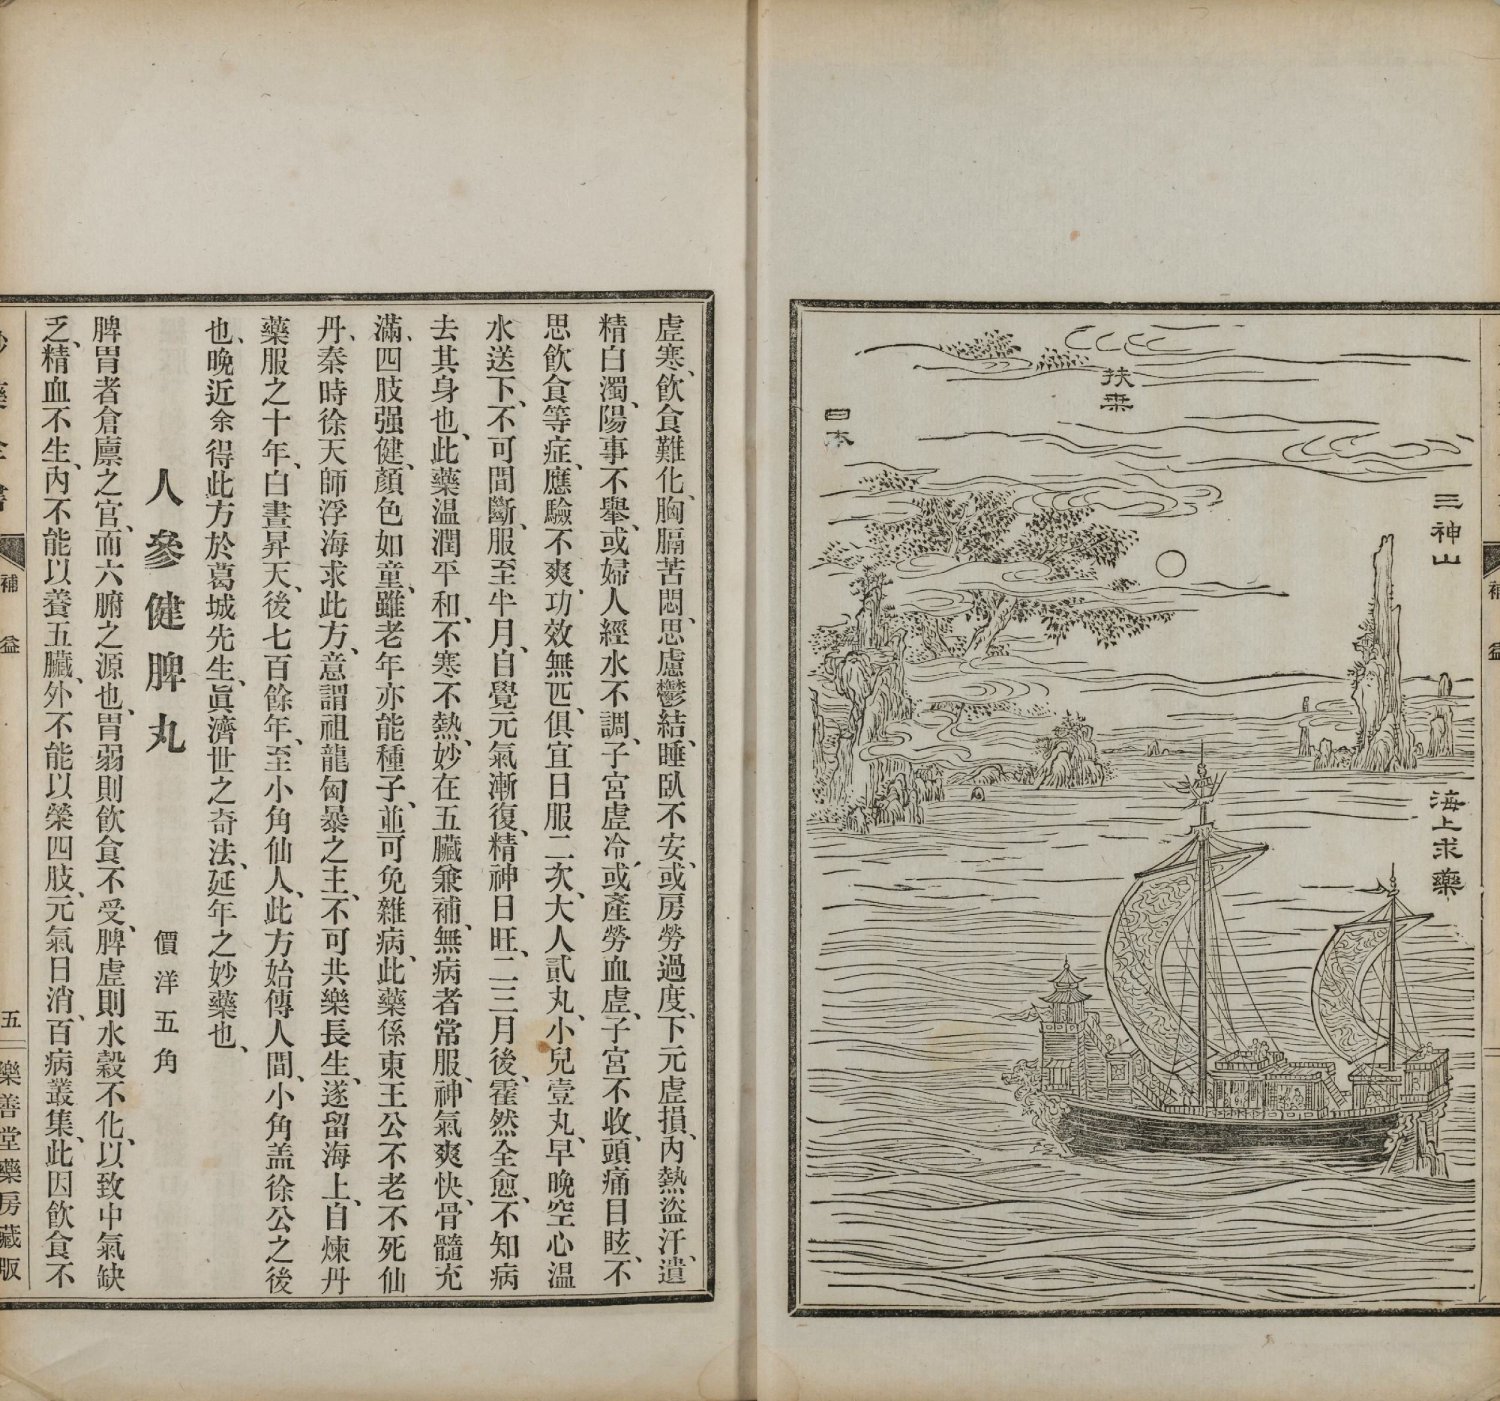 三神山
海上求藥
扶桒
日本
補益
虛寒、飲食難化、胸膈苦悶、思慮鬱結、睡臥不安、或房勞過度、下元虛損、內熱盜汗、遺
精白濁、陽事不舉、或婦人經水不調、子宮虛冷、或產勞血虛、子宮不收、頭痛目眩、不
思飲食等症、應驗不爽、功效無匹、俱宜日服二次、大人貳丸、小兒壹丸、早晚空心溫
水送下、不可間斷、服至半月、自覺元氣漸復、精神日旺、二三月後、霍然全愈、不知病
去其身也、此藥溫潤平和、不寒不熱、妙在五臟兼補、無病者常服、神氣爽快、骨髓充
滿、四肢强健、顏色如童、雖老年亦能種子、並可免雜病、此藥係東王公不老不死仙
丹、秦時徐天師浮海求此方、意謂祖龍匈暴之主、不可共樂長生、遂留海上、自煉丹
藥服之十年、白晝昇天、後七百餘年、至小角仙人、此方始傳人間、小角盖徐公之後
也、晚近余得此方於葛城先生、眞濟世之奇法、延年之妙藥也、
人參健脾丸 價洋五角
脾胃者倉廩之官、而六腑之源也、胃弱則飲食不受、脾虛則水穀不化、以致中氣缺
乏、精血不生、內不能以養五臟、外不能以榮四肢、元氣日消、百病叢集、此因飲食不
藥全書 補益 五 樂善堂藥房藏版